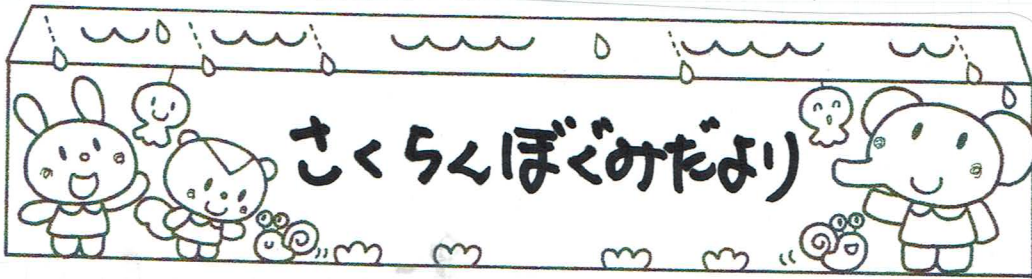 さくらんぼぐみだより